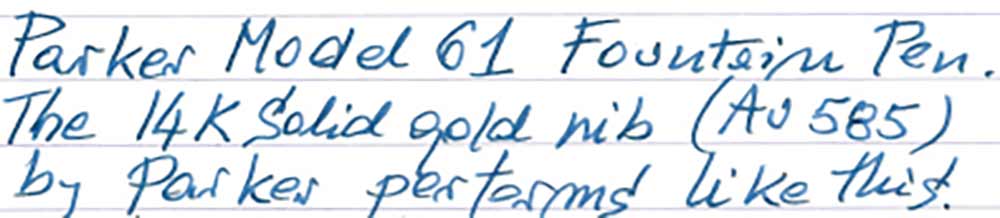 Parker Model 61 Fountain Pen.
The 14K Solid gold nib (AU 585)
by Parker performs like this.